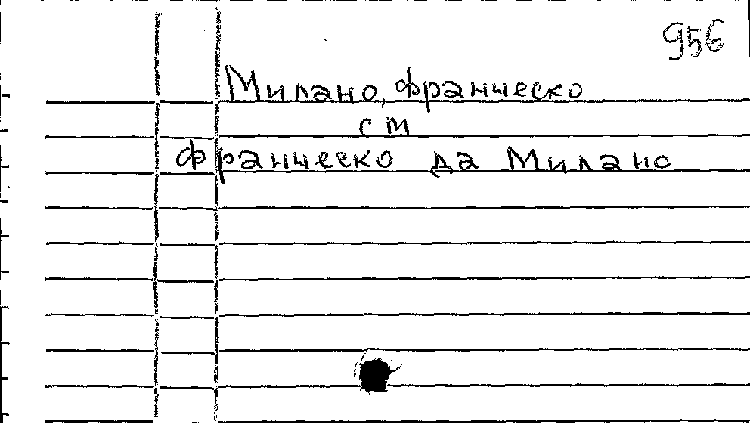 956
Милано, франческо
см
франческо да Милано